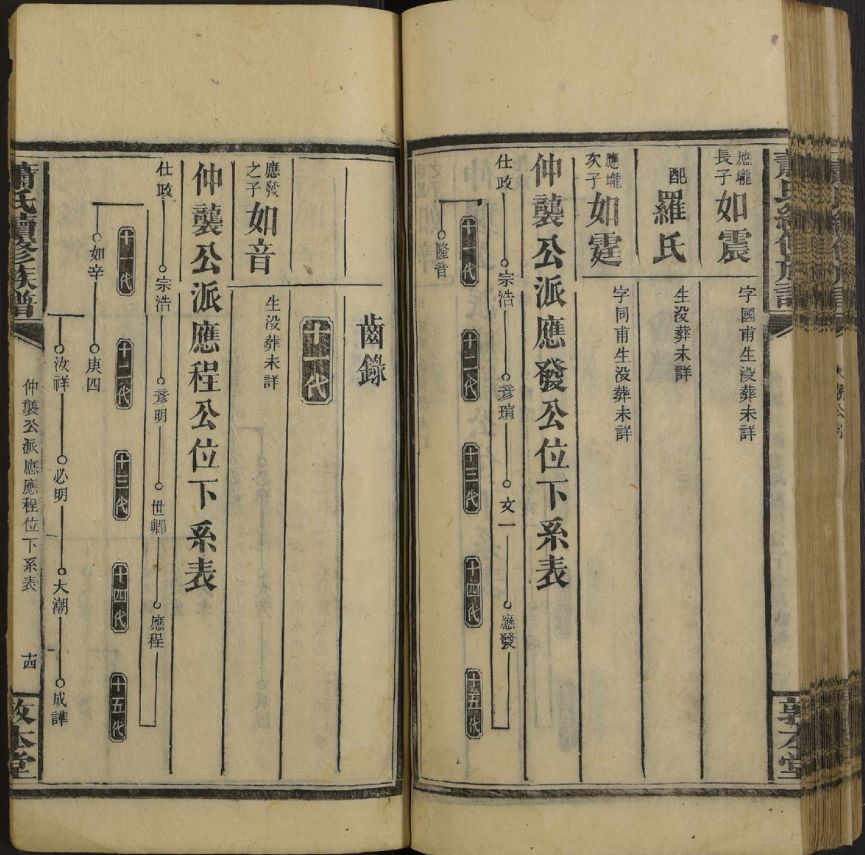 應壠
長子
如震
字國甫生没葬未詳
配
羅氏
生没葬未詳
應壠
次子
如霆
字同甫生没葬未詳
仲襲公派應發公位下系表
仕政
宗浩
彥瑄
文一
應發
十一代
十二代
十三代
十四代
十五代
隆音
敦本堂
齒錄
十一代
應發
之子
如音
生没葬未詳
仲襲公派應程公位下系表
仕政
宗浩
彥明
世卿
應程
十一代
十二代
十三代
十四代
十五代
如辛
庚四
汝祥
必明
大潮
成譁
蕭氏續修族譜
仲襲公派應應程位下系表
十四
敦本堂